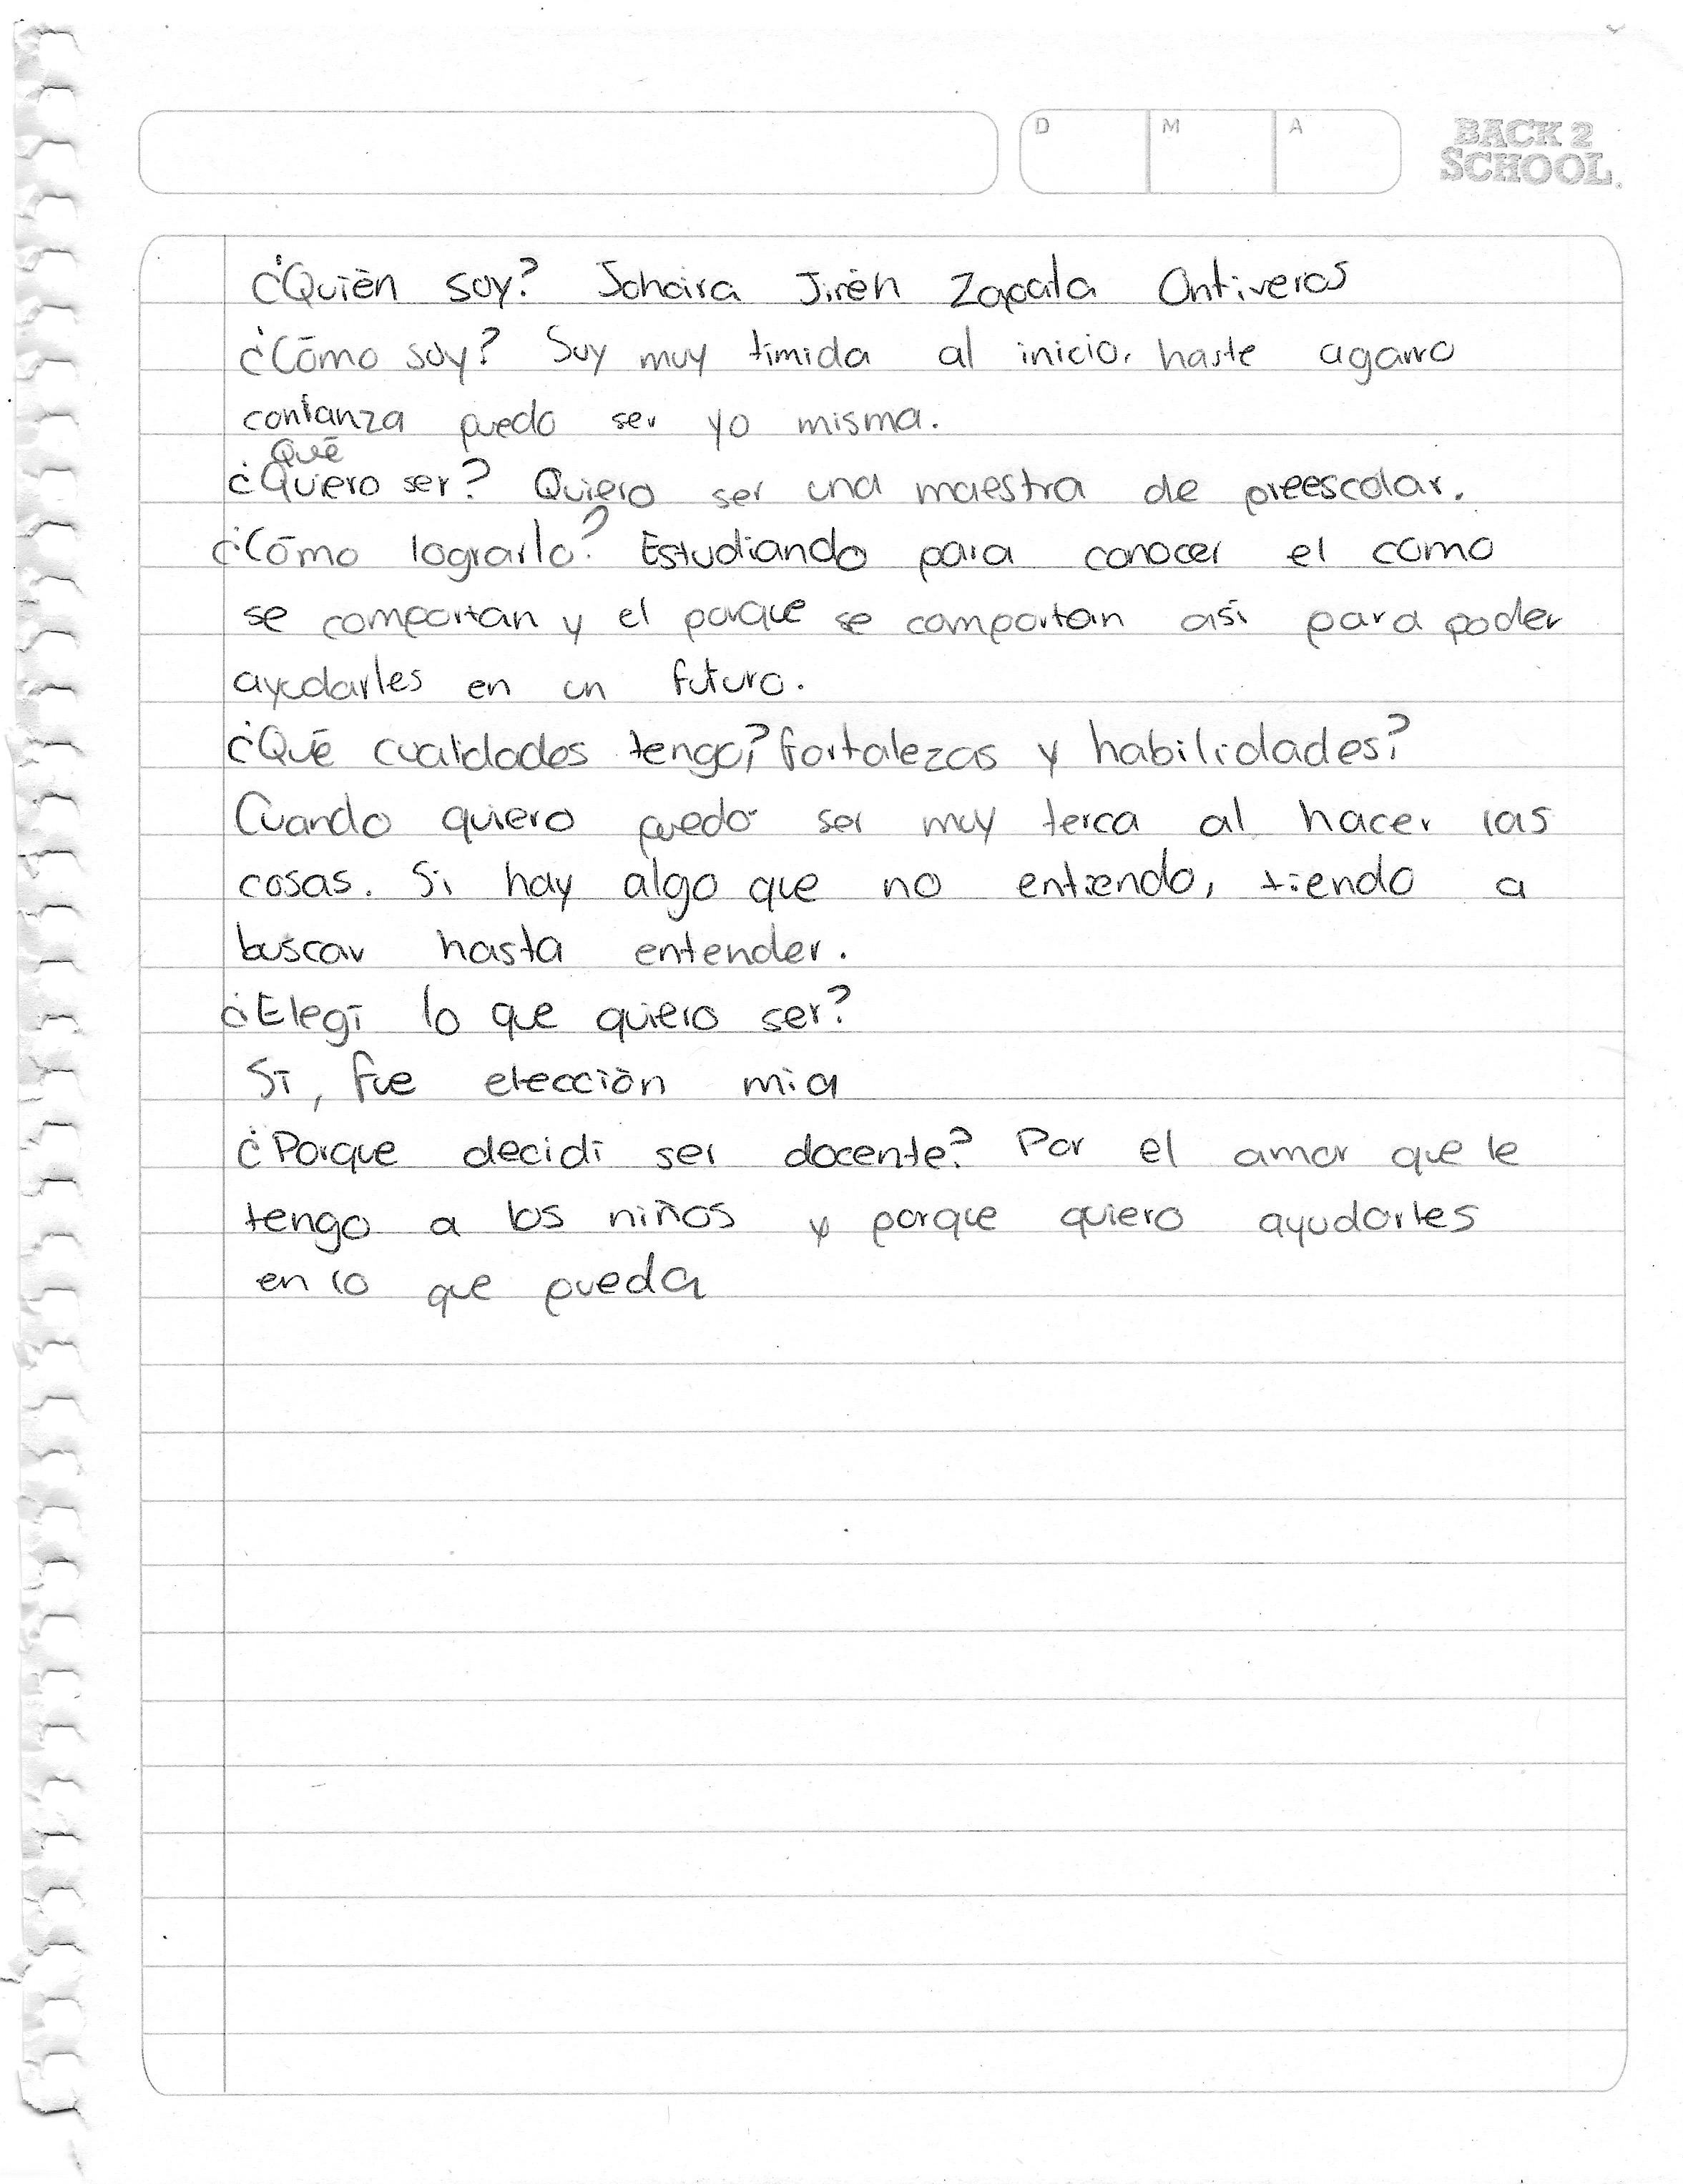 D M A BACK 2 SCHOOL.
¿Quién soy? Johaira Jiréh Zapata Ontiveros
¿Cómo soy? Soy muy timida al inicio, haste agarro
confianza puedo ser yo misma.
Qué
¿Quiero ser? Quiero ser una maestra de preescolar.
¿Cómo lograrlo? Estudiando para conocer el como
se comportan y el porque se comportan así para poder
ayudarles en un futuro.
¿Qué cualidades tengo? fortalezas y habilidades?
Cuando quiero puedo ser muy terca al hacer las
cosas. Si hay algo que no entiendo, tiendo a
buscar hasta entender.
¿Elegí lo que quiero ser?
Sí, fue elección mia
¿Porque decidí ser docente? Por el amor que le
tengo a los niños y porque quiero ayudarles
en lo que pueda